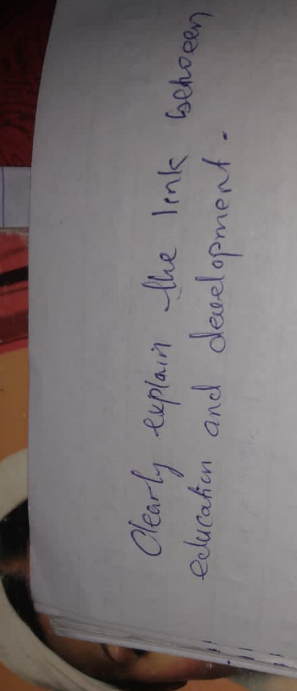 Clearly explain the link between
education and development.